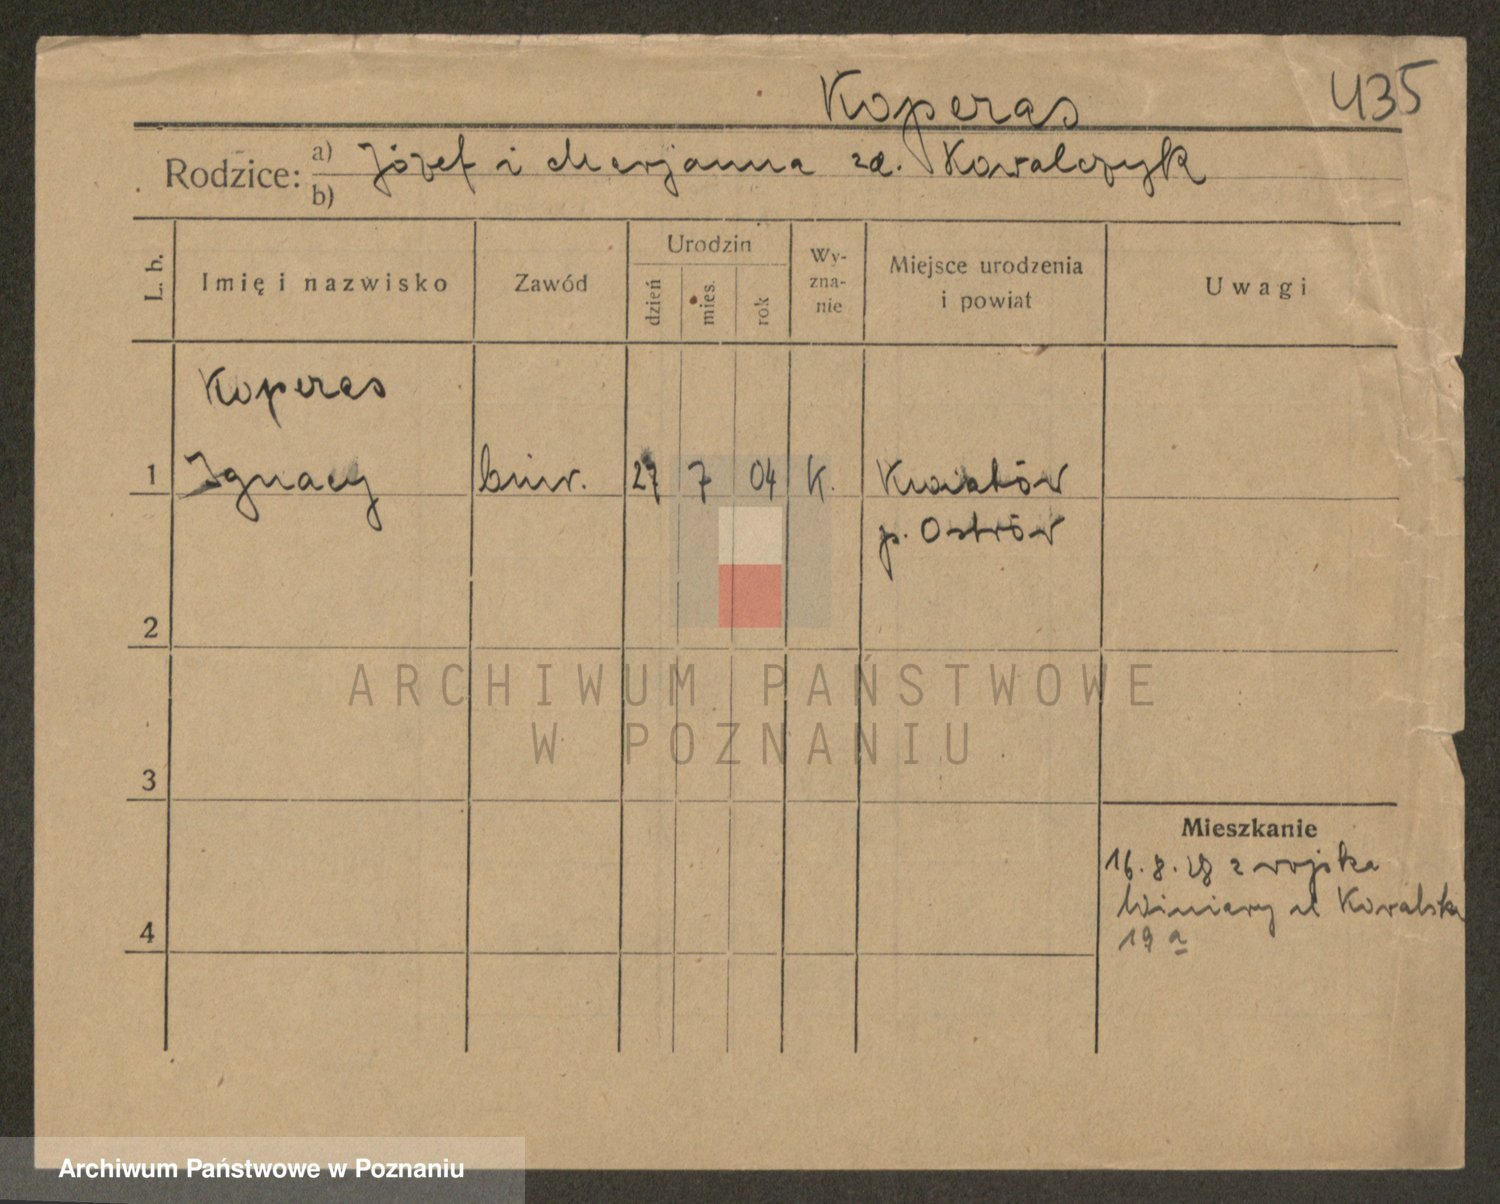 Koperas 435
Rodzice: a) Józef i Marjanna zd. Kowalczyk
b)
L. b. Imię i nazwisko Zawód Urodzin dzień mies. rok Wy-zna-nie Miejsce urodzenia i powiat Uwagi
Koperas
1 Ignacy biur. 27 7 04 K. Kwiatów
p. Ostrów
2
ARCHIWUM PAŃSTWOWE
W POZNANIU
3
Mieszkanie
16.8.28 z wojska
Winiary ul Kowalska
4
19 a
Archiwum Państwowe w Poznaniu